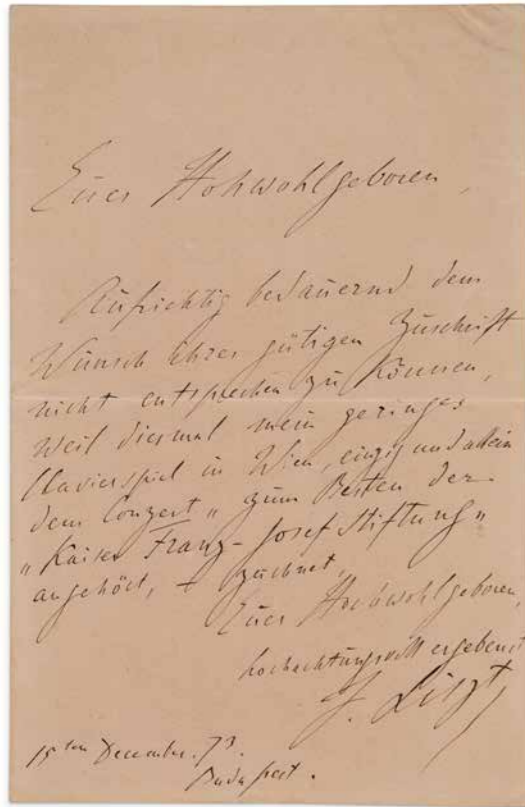 Euer Hohwohlgeboren,
Aufrichtig bedauernd dem
Wunsch ihrer gütigen Zuschrift
nicht entsprechen zu können,
weil diesmal mein geringes
Clavierspiel in Wien, einzig und allein
dem Conzert „zum Besten der
„Kaiser Franz-Josef Stiftung“
angehört, – zeichnet,
Euer Hochwohlgeboren,
hochachtungsvoll ergebenst
F. Liszt
15ten December. 73.
Budapest.